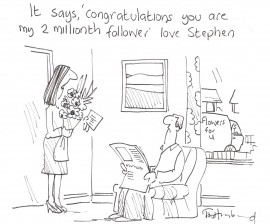 It says, 'congratulations you are
my 2 millionth follower' love Stephen
flowers
for
u